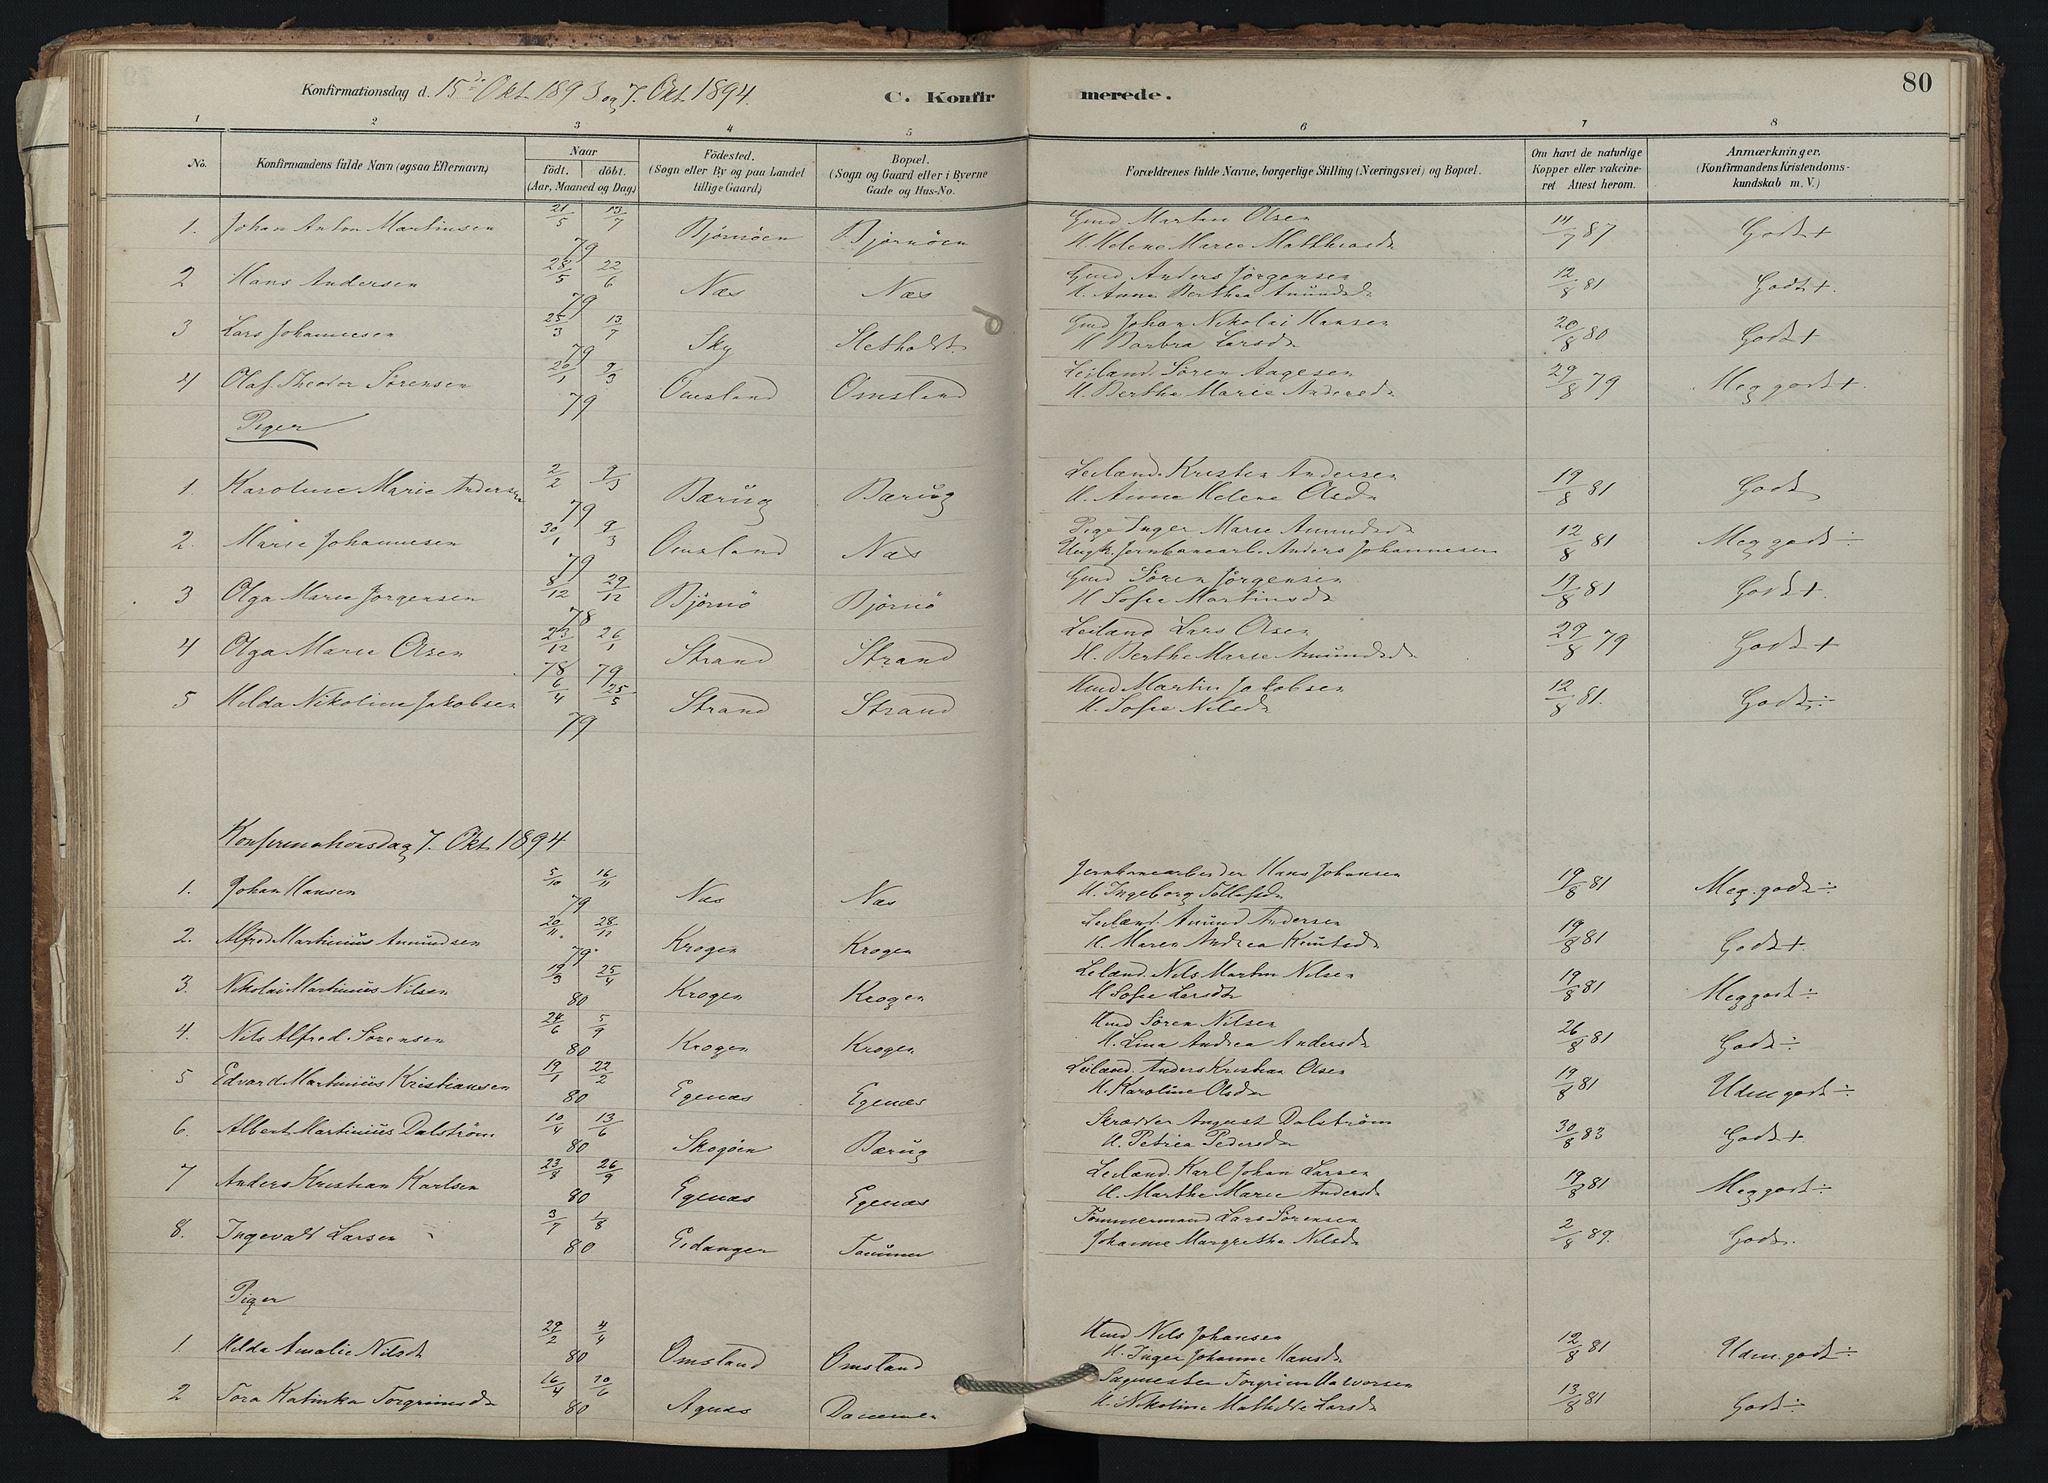 Konfirmationsdag d. 15de Okt. 1893 og 7. Okt. 1894.
C. Konfirmerede.
80
1 2 3 4 5 6 7 8
No.
Konfirmandens fulde Navn (ogsaa Efternavn)
Naar
födt. döbt.
(Aar, Maaned og Dag.)
Födested.
(Sogn eller By og paa Landet tillige Gaard)
Bopæl.
(Sogn og Gaard eller i Byerne Gade og Hus-No.
Forældrenes fulde Navne, borgerlige Stilling (Næringsvei) og Bopæl.
Om havt de naturlige Kopper eller vakcineret Attest herom.
Anmærkninger.
(Konfirmandens Kristendomskundskab m. V.)
1. Johan Anton Martinsen 21/5 13/7 79 Bjørnöen Bjørnöen Gmd Martin Olsen 14/7 87 Godt +
H. Helene Marie Matthiasdr
2 Hans Andersen 28/5 22/6 79 Næs Næs Gmd Anders Jørgensen 12/8 81 Godt +
H. Anne Berthea Amundsdr
3 Lars Johannesen 25/3 13/7 79 Sky Hetholdt Gmd Johan Nikolai Hansen 20/8 80 Godt +
H Barbra Larsdr
4 Olaf Theodor Sörensen 20/1 9/3 79 Omsland Omsland Leiländ. Sören Aagesen 29/8 79 Meg godt +
H. Berthe Marie Andersdr
Piger
1. Karoline Marie Andersen 2/2 9/3 79 Bærug Bærug Leilænd. Kristen Andersen 19/8 81 Godt
H. Anne Helene Olsdr
2. Marie Johannesen 30/1 9/3 79 Omsland Næs Pige Inger Marie Amundsdr 12/8 81 Meg godt ÷
Ungk. Jernbanearb. Anders Johannesen
3 Olga Marie Jørgensen 8/12 29/12 78 Bjørnö Bjørnö Gmd Sören Jörgensen 19/8 81 Godt +
H Sofie Martinsdr
4 Olga Marie Olsen 23/12 78 26/1 79 Strand Strand Leiländ Lars Olsen 29/8 79 Godt +
H. Berthe Marie Amundsdr
5 Hilda Nikoline Jakobsen 6/4 25/5 79 Strand Strand Hmd Martin Jakobsen 12/8 81. Godt ÷
H. Sofie Nilsdr
Konfirmationsdag 7. Okt. 1894
1. Johan Hansen 5/10 16/11 79 Næs Næs Jernbanearbeider Hans Johansen 19/8 81 Meg. godt ÷
H. Ingeborg Tollefsdr
2. Alfred Martinius Amundsen 20/11 28/12 79 Krogen Krogen Leilænd. Amund Andersen 19/8 81 Godt +
H. Maren Andrea Knutsdr
3. Nikolai Martinius Nilsen 19/3 25/4 80 Krogen Krogen Leiænd. Nils Martin Nilsen 19/8 81 Meg godt ÷
H Sofie Larsdr
4. Nils Alfred Sörensen 24/6 5/9 80 Krogen Krogen Hmd Sören Nilsen 26/8 81 Godt ÷
H. Lina Andrea Andersdr
5 Edvard Martinius Kristiansen 19/1 22/2 80 Egenæs Egenæs Leilænd. Anders Kristian Olsen 19/8 81 Udm godt ÷
H. Karoline Olsdr
6. Albert Martinius Dalström 10/4 13/6 80 Skogöen Bærug Skrædder August Dalström 30/8 83 Godt +
H. Petrea Pedersdr
7 Anders Kristian Karlsen 23/8 26/9 80 Egenæs Egenæs Leilænd. Karl Johan Larsen 19/8 81 Meg godt ÷
H. Marthe Marie Andersdr
8. Ingevald Larsen 3/7 1/8 80 Eidanger Tommermand Lars Sörensen 2/8 89. Godt.
Johanne Margrethe Nilsdr
Piger
1. Hilda Amalie Nilsdr 29/2 4/4 80 Omsland Omsland Hmd Nils Johansen 12/8 81 Udm. godt ÷
H. Inger Johanne Hansdr
2 Tora Katinka Torgrimsdr 16/4 10/6 80 Agnæs Dammen Sagmester Torgrim Halvorsen 13/8 81 Godt ÷
H. Nikoline Mathilde Larsdr